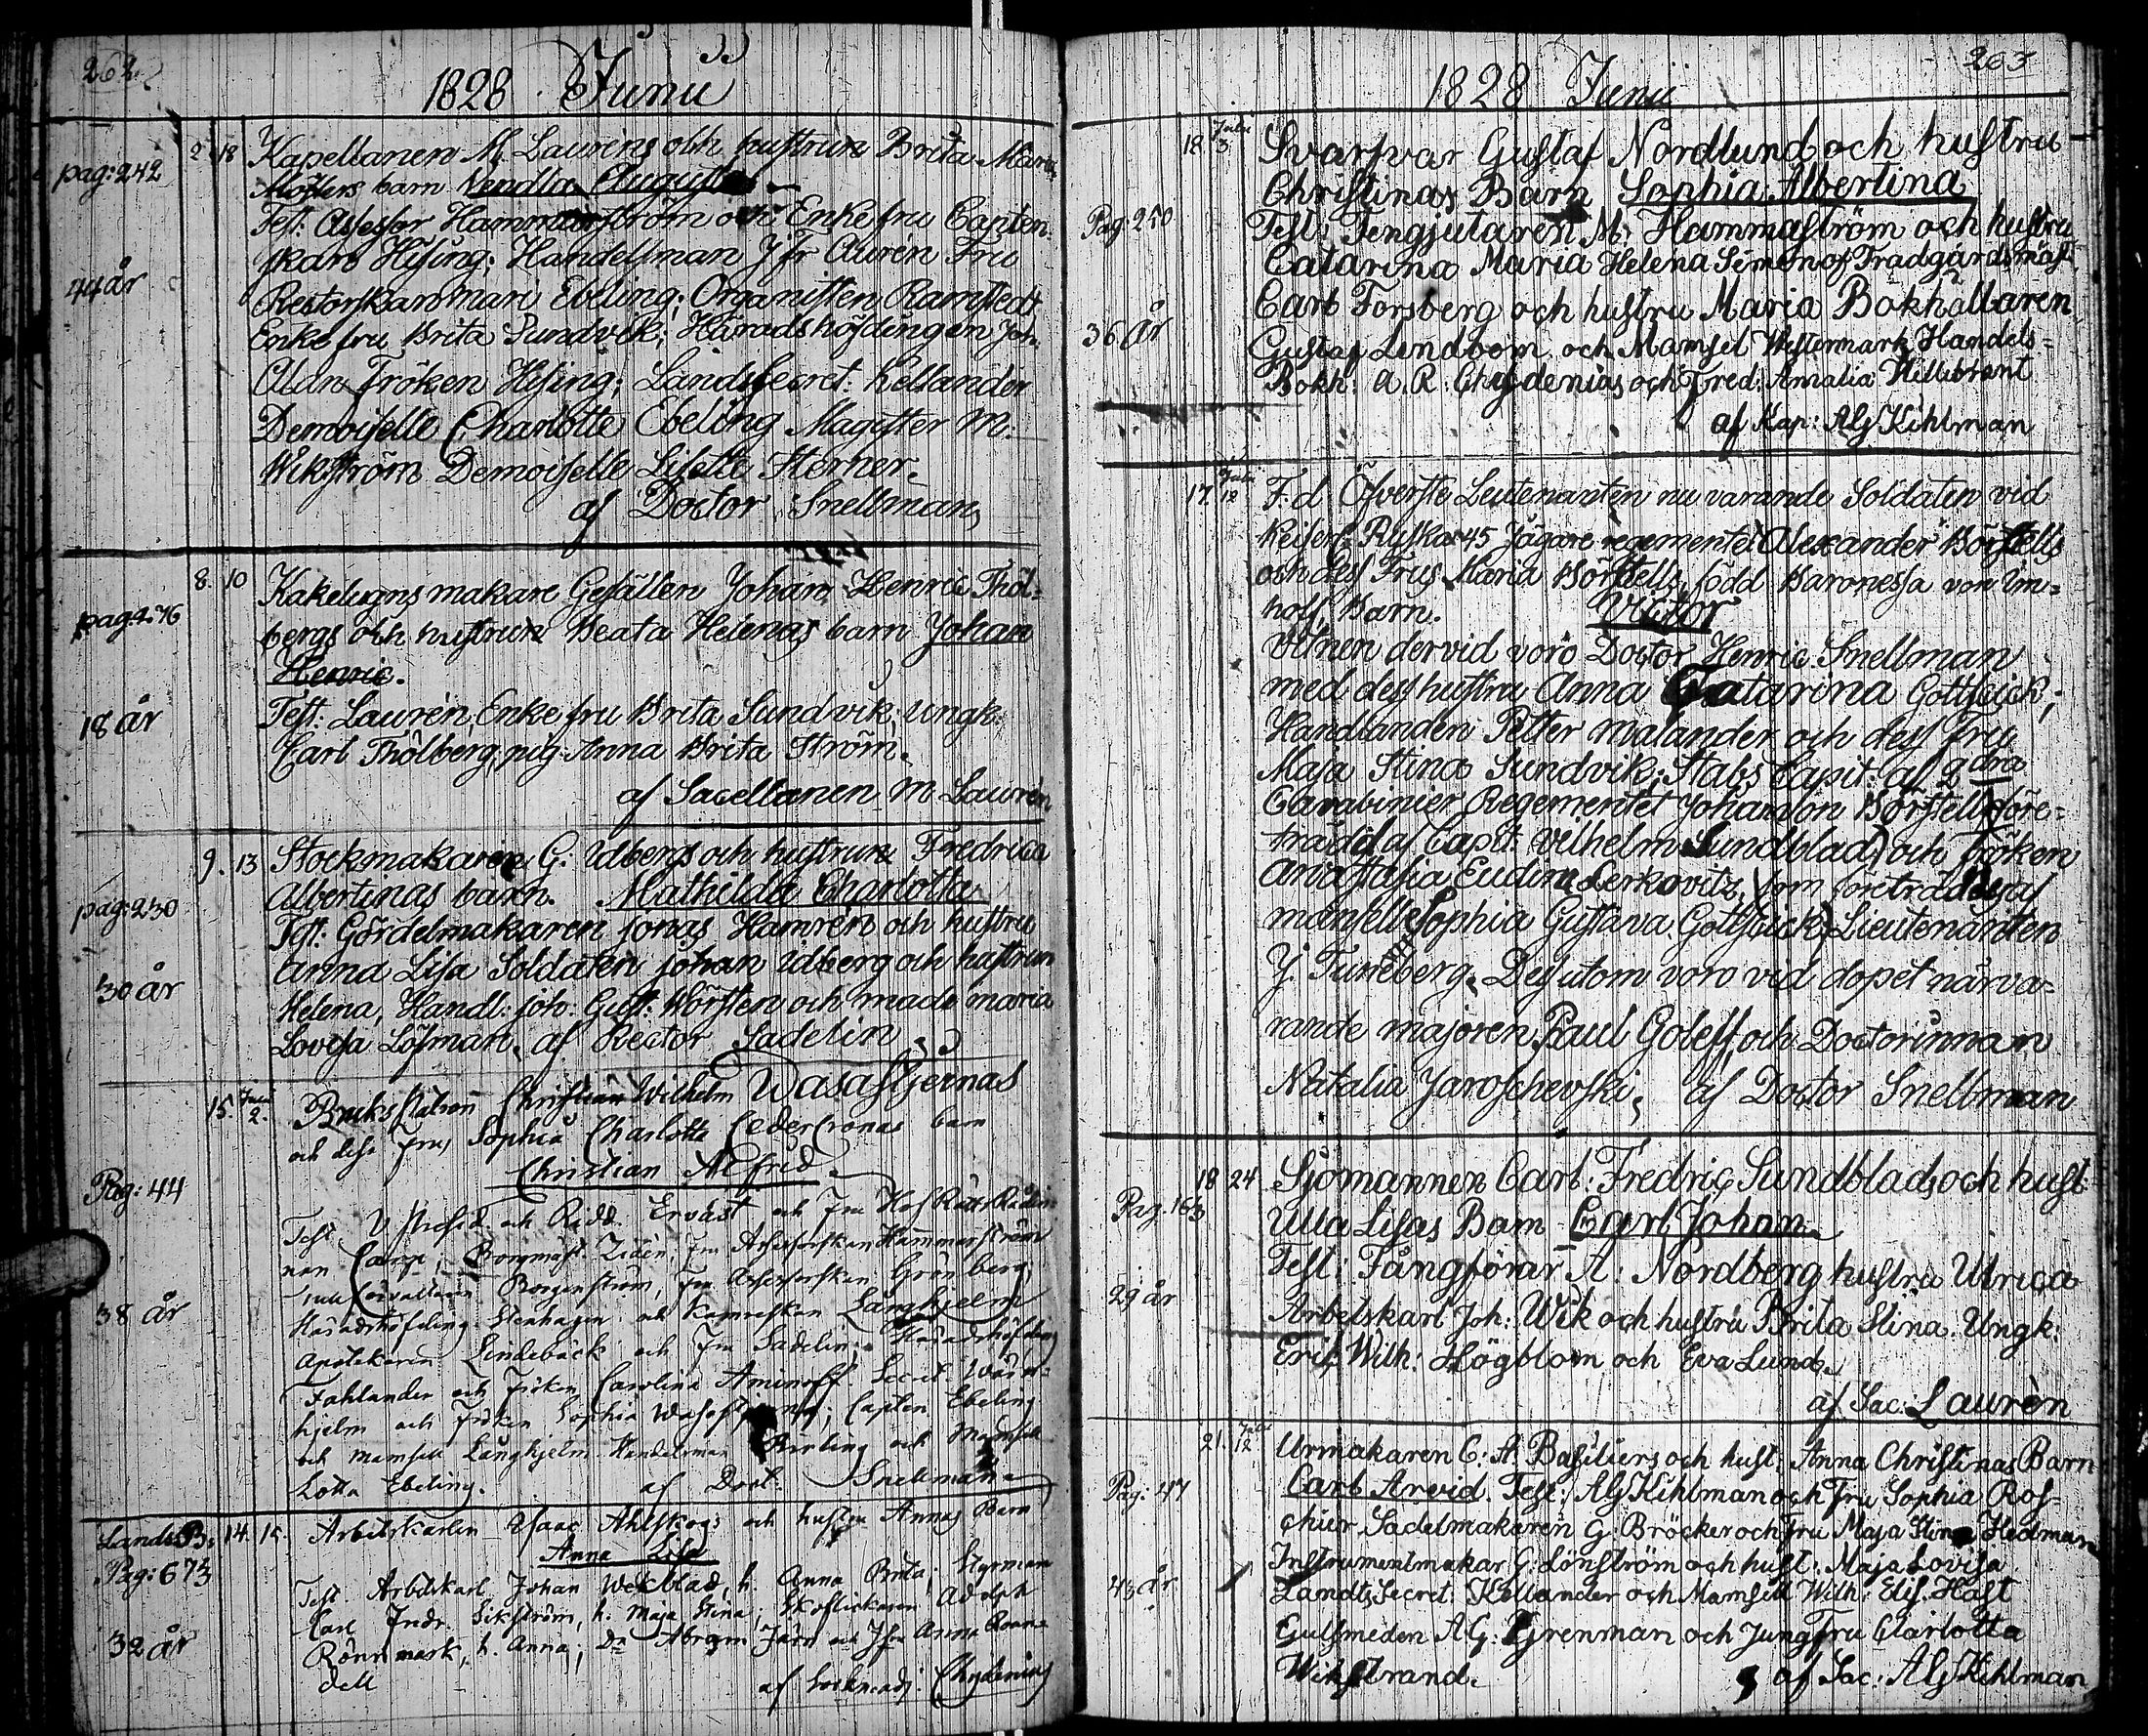 262
1828 Junii
pag: 242
44 år
2. 18
Kapellanen M. Laurins och hustrun Brita Maria
Mösters barn Vendla Augusta
Test: Assessor Hammarström och Enkefru Capten
skan Hising; Handelsman J fr Auren Fru
Restorskan Mari Ebeling; Organisten Ramstedt
Enkefru Brita Sundvik; Häradshöfdingen Joh.
Aldn Fröken Hising; Landssecret: Kellander
Demoiselle Charlotte Ebeling Magister M:
Wikström Demoiselle Lisette Sterner.
af Doctor Snellman
pag 4: 76
18 år
8. 10
Kakelugnsmakare Gesällen Johan Henric Thöl-
bergs och hustrun Beata Helenas barn Johan
Henric.
Test: Laurén, Enkefru Brita Sundvik; ungk:
Carl Thölberg, pig. Anna Brita Ström.
af Sacellanen M Laurén
pag: 230
30 år
9. 13
Stockmakaren G. Udbergs och hustrun Fredrica
Albertinas barn. Mathilda Charlotta
Test: Gördelmakaren Jonas Hamrén och hustru
Anna Lisa Soldaten Johan Udberg och hustrun
Helena, Handl: Joh: Gust: Wörsten och made maria
Lovisa Löfman, af Rector Sadelin
Pag: 44
38 år
15. Julii 2.
Bruks Patron Christian Wilhelm Wasastjernas
och dess frus Sophia Charlotte CederCronas barn
Christian Alfred.
Test V Presid och Ridd. Ervast och Fru HofRättsRådin-
nan Carp; Borgmäst. Zidén, Fru Assessorskan Hammarström
Tullförvaltaren Borgenström, Fru Assessorskan Grönberg
Häradshöfding Stenhagen och Kamrerskan Långhjelm
Apotekaren Lindebäck och Fru Sadelin; Häradshöfding
Fahlander och Fröken Carolina Aminoff Secret Wärn-
hjelm och Fröken Sophia Wasastjerna; Capten Ebeling
och Mamsell Långhjelm Handelsman Ebeling och Mamsell
Lotta Ebeling. af Doct. Snellman
Lands B:
Pag: 673
32 år
14. 15.
Arbetskarlen Isaac Ahlskogs och hustru Annas Barn
Anna Lisa
Test. Arbetskarl Johan Wexblad, h. Anna Brita; Styrman
Carl Fredr. Sikström, h. Maja Stina; Skoflickaren Adolph
Rönnmark, h. Anna; Dr Abram Järn och Jfru Anna Rönn-
dell
af Sockneadj: Chydenius
263
1828 Junii
Pag: 250
36 år
18 Julii 3.
Svarfvar Gustaf Nordlund och hustru
Christinas Barn Sophia Albertina
Test: Tengjutaren M: Hammaström och hustru
Catarina Maria Helena Simenof Trädgårdsmäst:
Carl Forsberg och hustru Maria Bokhållaren
Gustaf Lindbom och Mamsel Westermark Handels-
Bokh: A. R. Chydenius och Fred: Amalia Hillebrant
af Kap: AG Kihlman
17. Julii 12
F: d Öfverste Leutenanten nu varande Soldaten vid
Keiserl: Ryska 45 Jägare regementet Alexander Börstells
och dess Frus Maria Börstells, född Baronessa von Im-
hoff, Barn. Victor
Vitnen dervid voro Doctor Henric Snellman
med dess hustru Anna Catarina Gottsick;
Handlanden Petter Malander och dess Fru
Maja Stina Sundvik; Stabs Capit: af 2 dra
Carabinier Regementet Johan von Börstell före-
trädd af Capit: Vilhelm Sundblad) och Fröken
Anastasia Eudim Lerkovitz, (som företräddes af
mamsell Sophia Gustava Gottsick) Lieutenanten
J. Tuneberg. Dessutom voro vid dopet närva-
rande majoren Paul Goleff, och Doctorinnan
Natalia Jaroschevski, af Doctor Snellman
Pag. 163
29 år
18 24
Sjömannen Carl: Fredric Sundblads och hust:
Ulla Lisas Barn Carl Johan
Test: Fångförar A: Nordberg hustru Ulrica
Arbetskarl Joh: Wik och hustru Brita Stina. Ungk:
Erik Wilh: Högblom och Eva Lund.
af Sac: Laurèn
Pag: 47
43 år
21. Julii 12
Urmakaren C: A. Basiliers och hust: Anna Christinas Barn
Carl Arvid. Test: AG Kihlman och Fru Sophia Ros-
chier Sadelmakaren G. Bröcker och Fru Maja Stina Hedman
Instrumentmakar G: Lönström och hust: Maja Lovisa
Landts Secret: Kellander och Mamsell Wilh: Elis. Hast
Gulsmeden A G: Grenman och Jungfru Clarlotta
Wikstrand. af Sac: AG Kihlman